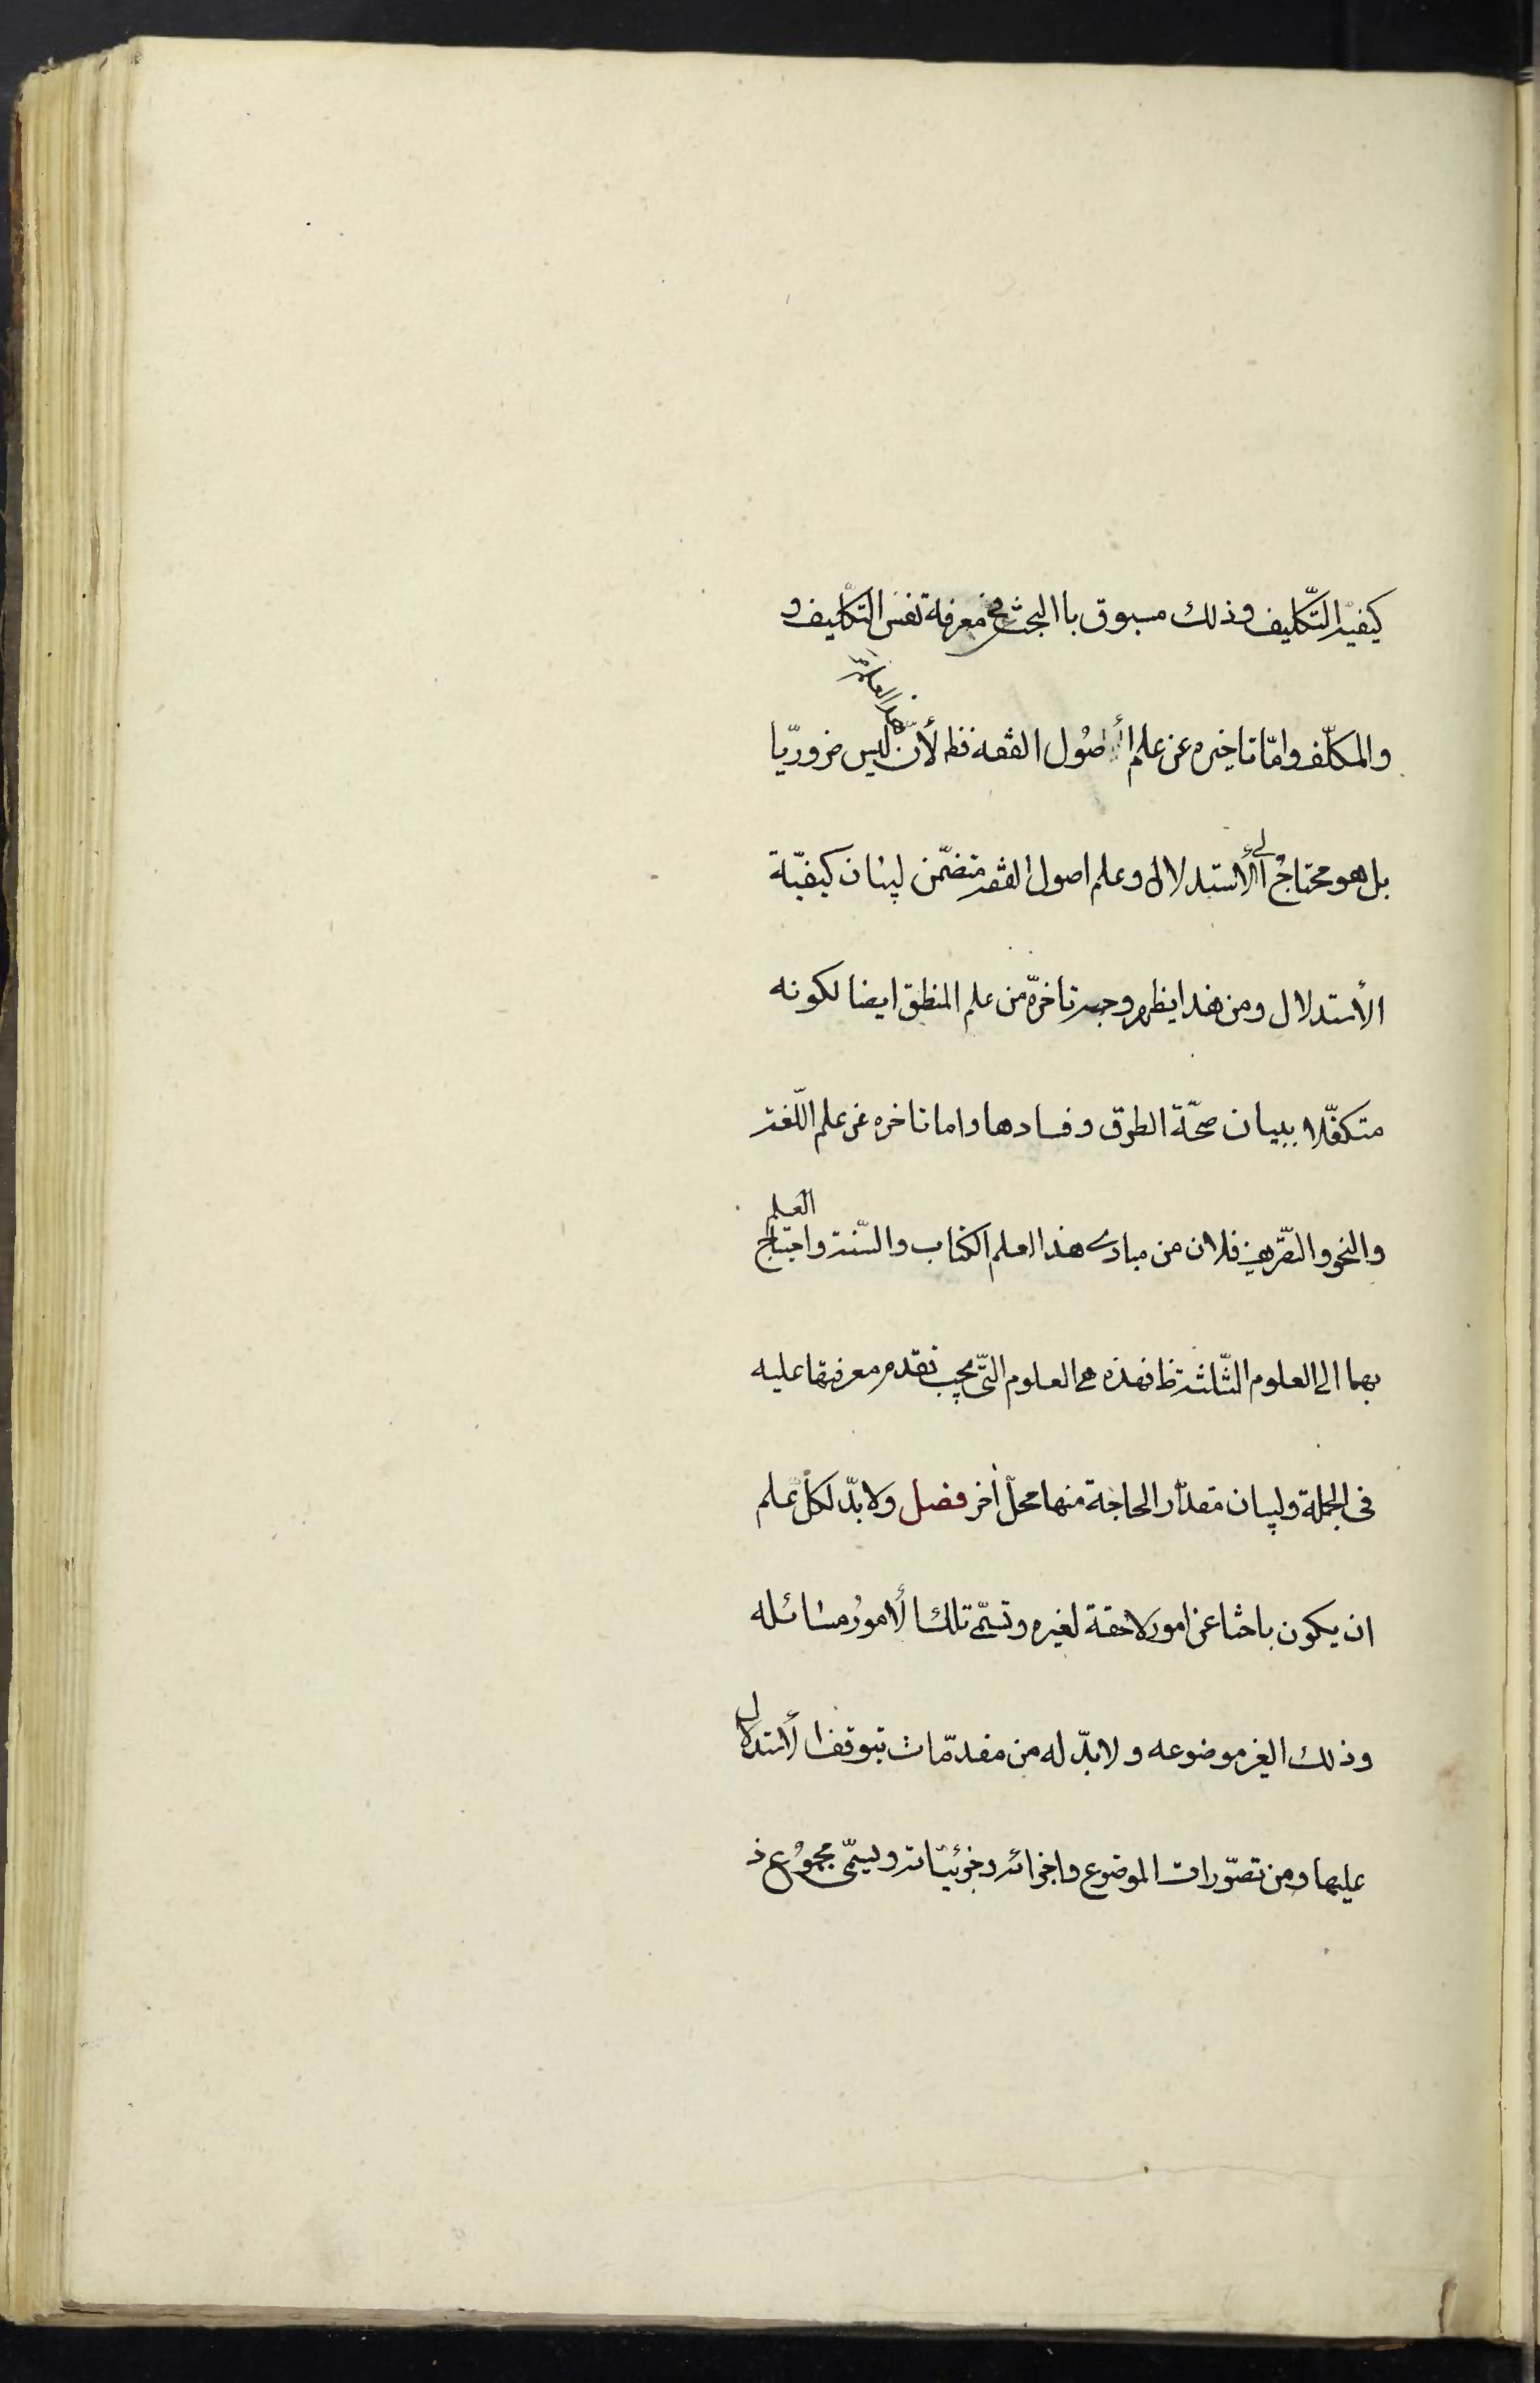 كيفيّة التّكليف وذلك مسبوق باالبحث عن معرفة نفس التّكليف و
والمكلّف وامّا تاخيره عن علم أصُول الفقه فظ لأنّ هذا العلم ليس ضروريّا
بل هو محتاجٌ الى الأستدلال وعلم اصول الفقه متضمّن لبيان كيفيّة
الأستدلال ومن هذا يظهر وجه تاخرّه من علم المنطق ايضا لكونه
متكفّلا ببيان صحّة الطرق وفسادها واما تاخره عن علم اللّغة
والنحو والتصّريف فلان من مبادى هذا العلم الكتاب والسّنة واحتياج العلم
بهما الى العلوم الثّلثة ظ فهذه هى العلوم التّى يجب تقدم معرفتها عليه
فى الجملة ولبيان مقدّار الحاجة منها محلّ أخر فصل ولا بدّ لكلّ علم
ان يكون باحثا عن امور لاحقة لغيره وتسمّى تلك الأمورُ مسائله
وذلك الغير موضوعه ولا بدّ له من مقدمّات يتوقف الأستدلال
عليها ومن تصّورات الموضوع واجزائه وجزئيّاته ويسمّى مجموُع ذ